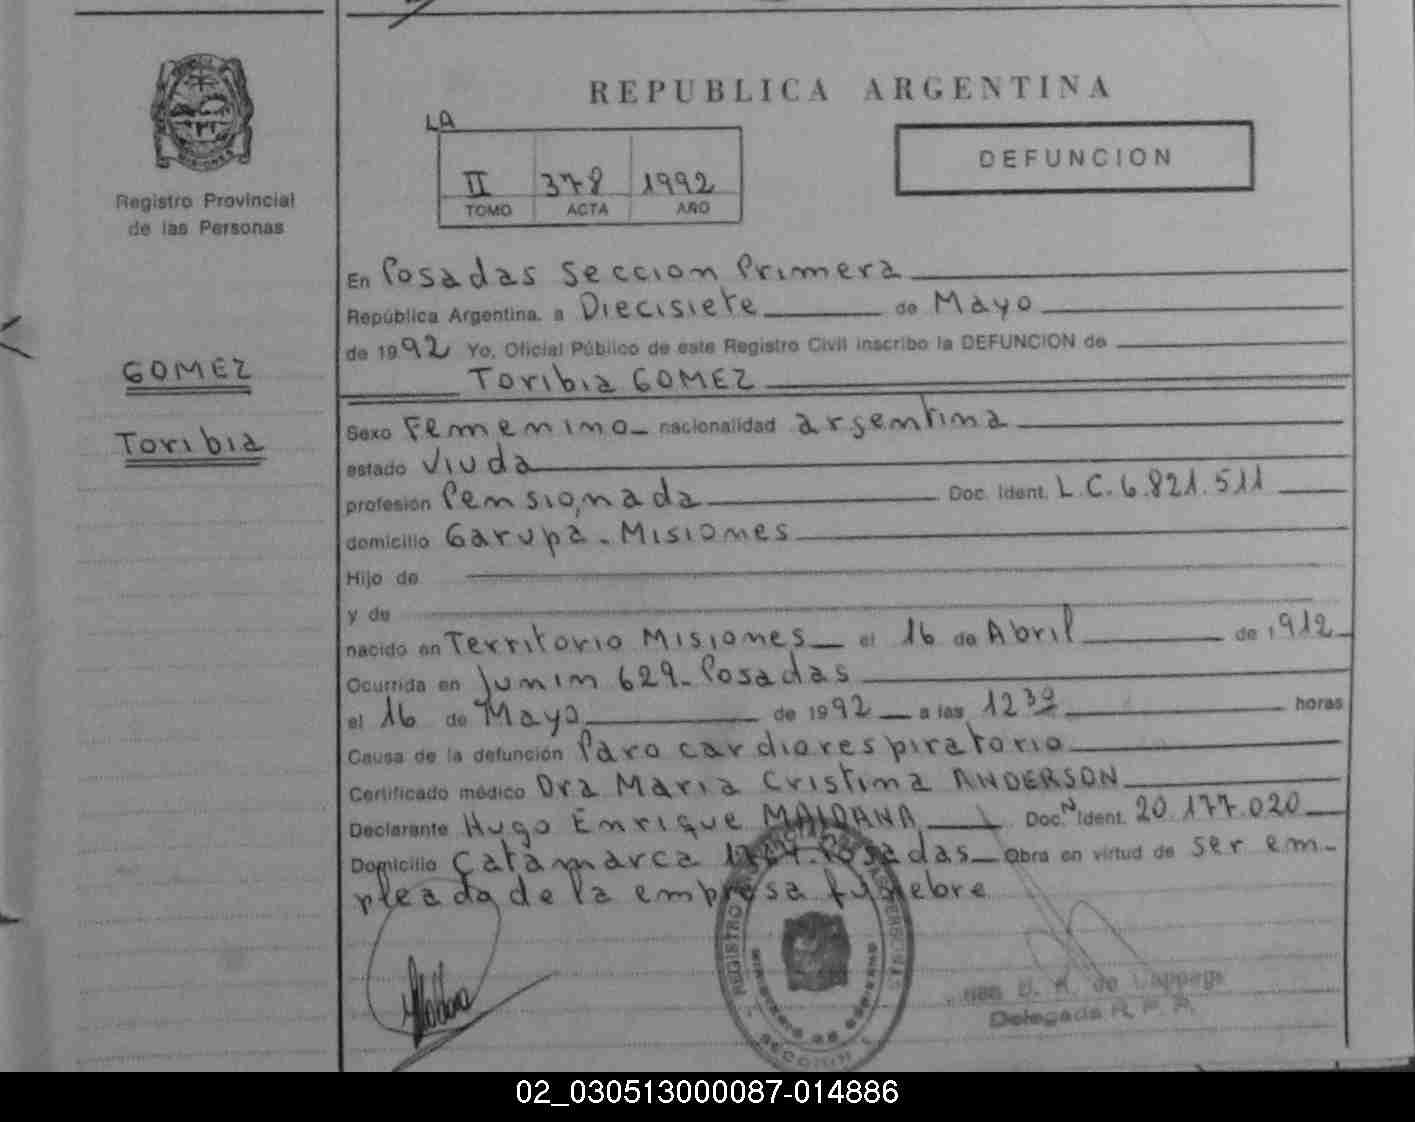 REPUBLICA ARGENTINA
LA
II 378 1992
TOMO ACTA AÑO
DEFUNCION
MISIONES
Registro Provincial
de las Personas
GOMEZ
Toribia
En Posadas Seccion Primera
República Argentina, a Diecisiete de Mayo
de 1992 Yo, Oficial Público de este Registro Civil inscribo la DEFUNCION de
Toribia GOMEZ
Sexo Femenino nacionalidad argentina
estado Viuda
profesión Pensionada Doc. Ident. L.C. 6.821.511
domicilio Garupa - Misiones
Hijo de
y de
nacido en Territorio Misiones el 16 de Abril de 1912
Ocurrida en Junin 629 - Posadas
el 16 de Mayo de 1992 a las 12 30 horas
Causa de la defunción Paro cardiorespiratorio
Certificado médico Dra Maria Cristina ANDERSON
Declarante Hugo Enrique MAIDANA Doc. N Ident. 20.177.020
Domicilio Catamarca Posadas Obra en virtud de ser em-
pleado de la empresa funebre
REGISTRO PROVINCIAL DE LAS PERSONAS
MINISTERIO DE GOBIERNO
SECCION 1
de
Delegada R. P. P.
02_030513000087-014886